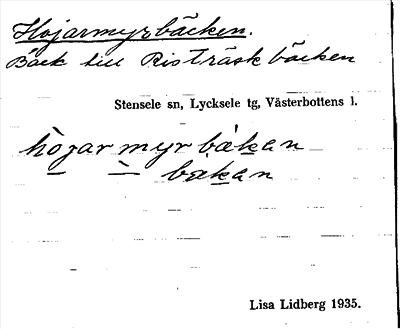 Hojarmyrbäcken.
Bäck till Risträskbäcken
Stensele sn, Lycksele tg, Västerbottens l.
hògar myr bàkan
bàkan
Lisa Lidberg 1935.